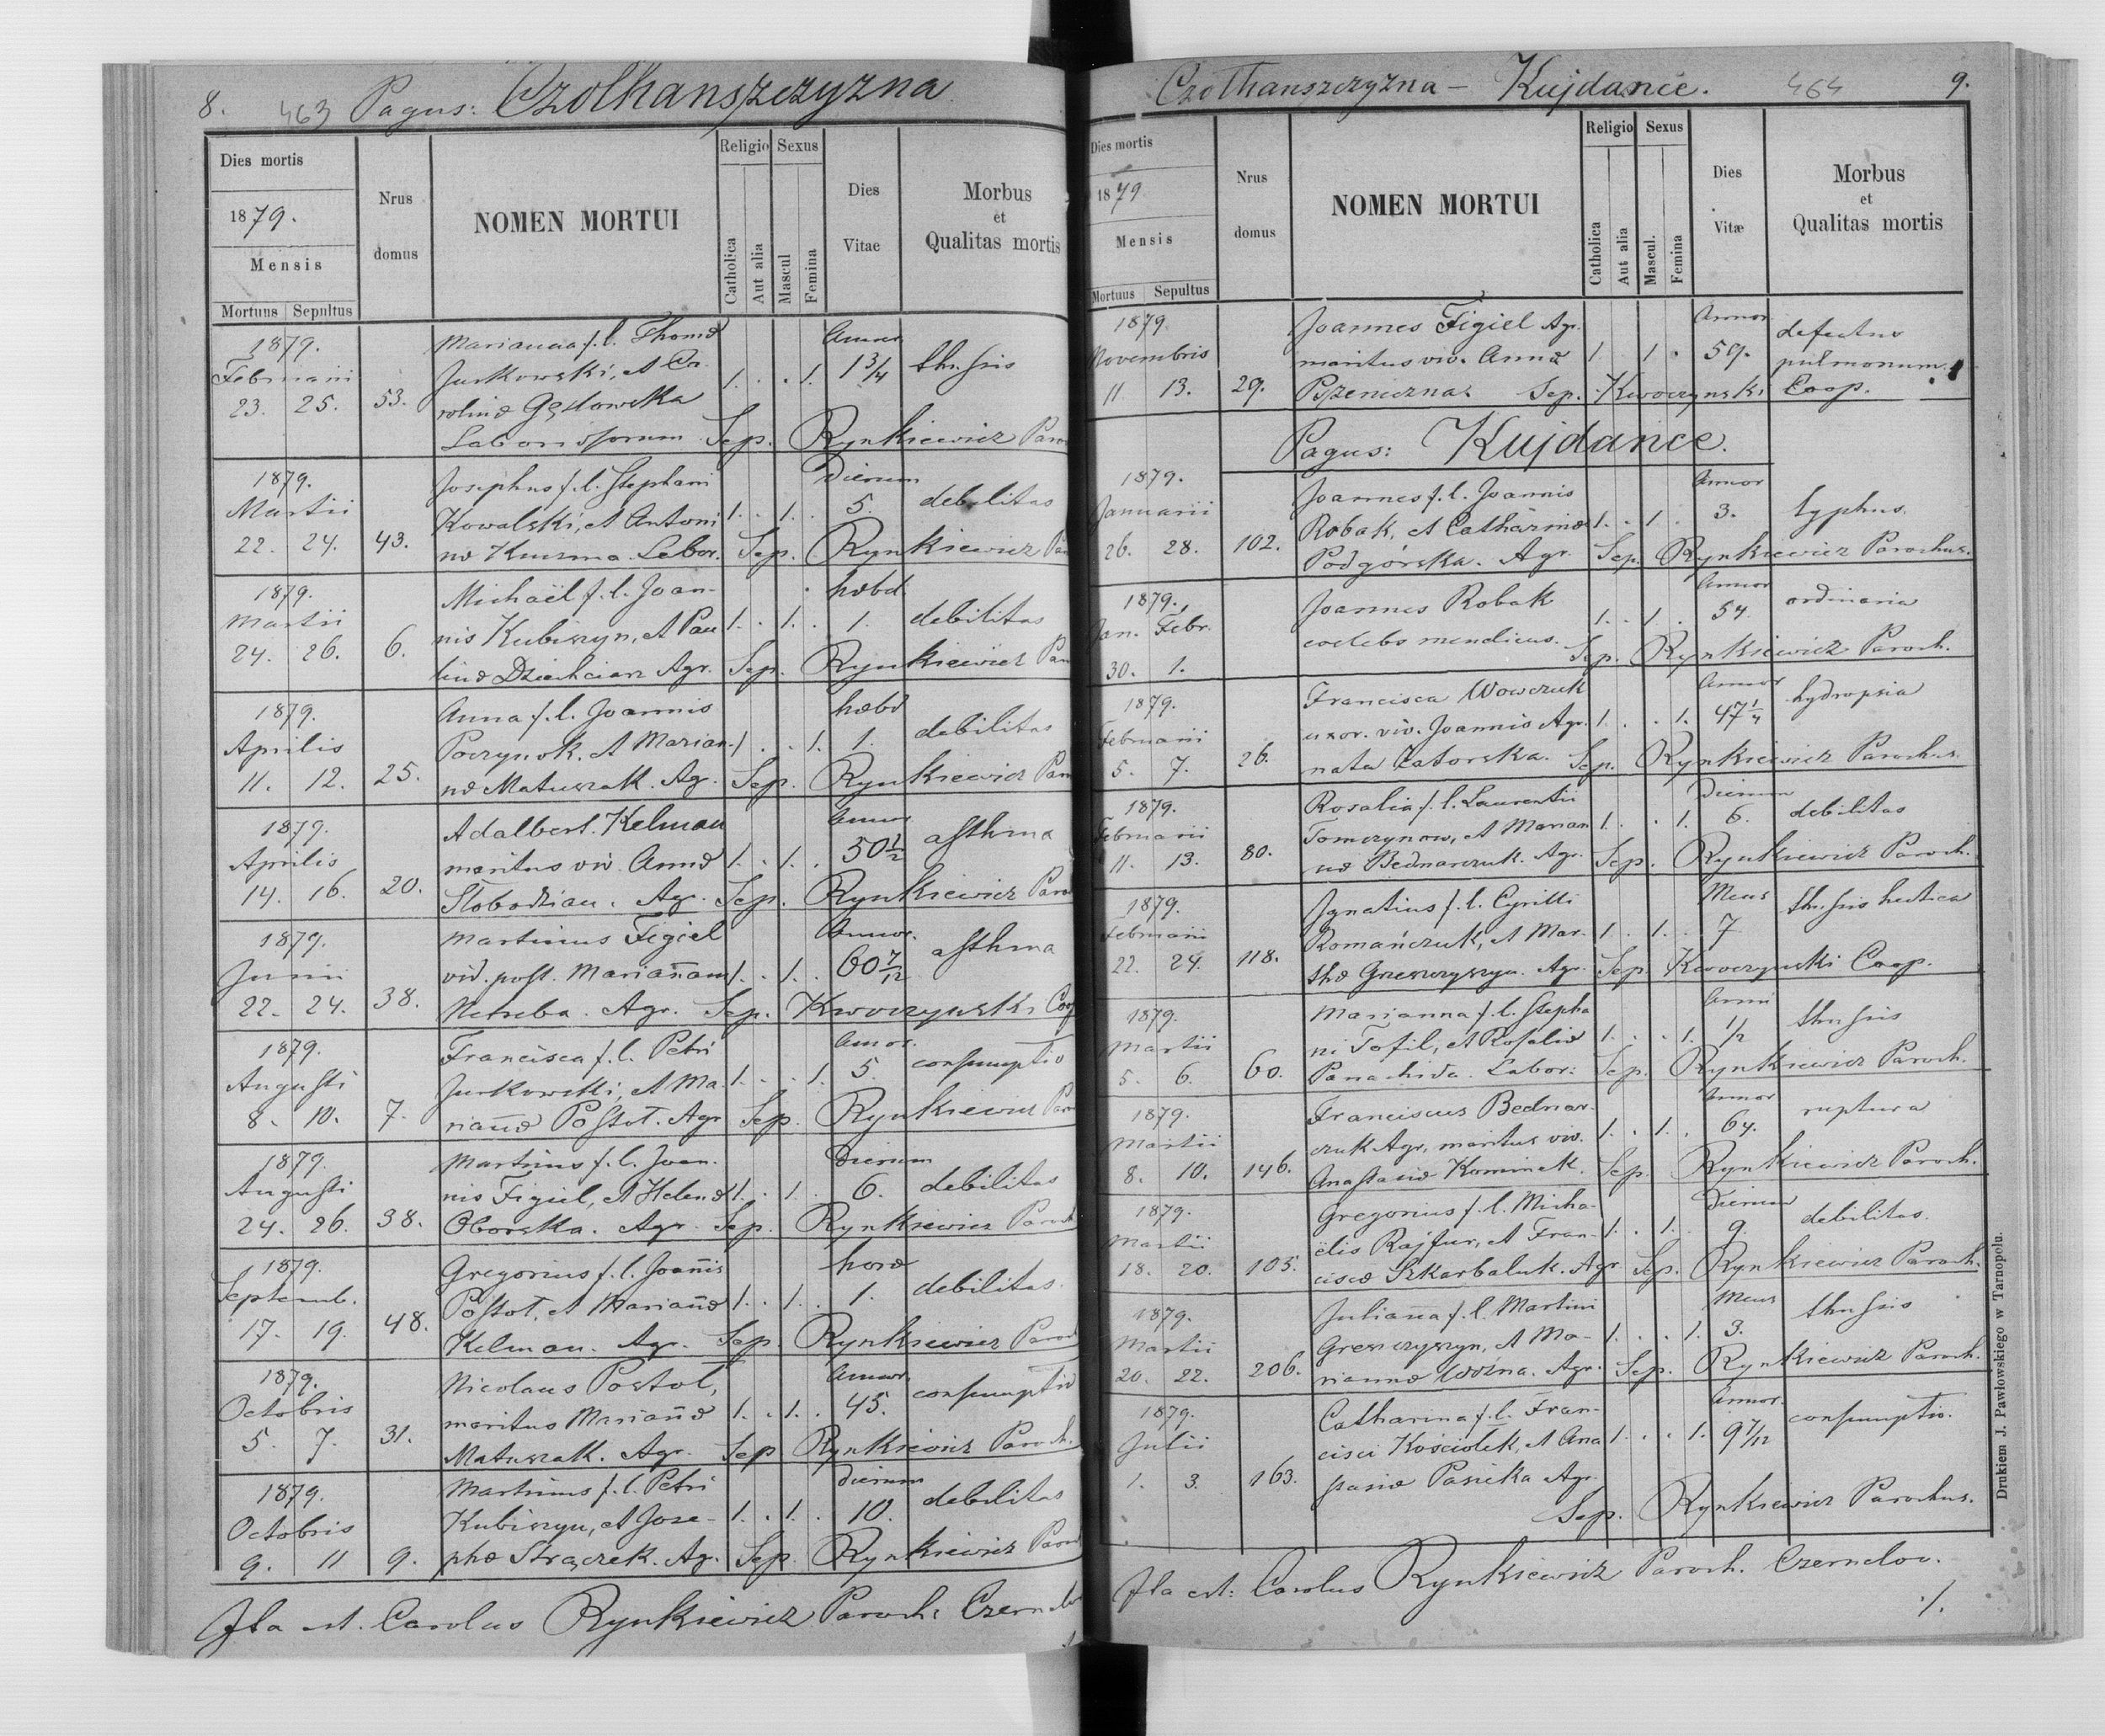 8. 463 Pagus: Czolhanszczyzna
Dies mortis
1879.
Mensis
Mortuus Sepultus
Nrus domus
NOMEN MORTUI
Religio Sexus
Catholica Aut alia Mascul Femina
Dies Vitae
Morbus et Qualitas mortis
1879. Marianna f. l. Thomæ Annor
Februarii Jurkowski, et Ca- 1. . . 1. 1 3/4 thussis
23. 25. 53. rolinæ Gęstowska
Laboriosorum Sep. Rynkiewicz
1879. Josephus f. l. Stephani Dierum
Martii Kowalski, et Antoni 1. . 1. . 5. debilitas
22. 24. 43. næ Kuzma. Labor. Sep. Rynkiewicz
1879. Michaël f. l. Joan- hebd.
Martii nis Kubiszyn, et Pau 1. . 1. . 1. debilitas
24. 26. 6. linæ Dziechciarz Agr. Sep. Rynkiewicz
1879. Anna f. l. Joannis hebd
Aprilis Poczynok, et Marian- 1 . . 1. 1. debilitas
11. 12. 25. næ Matuszak. Ag. Sep. Rynkiewicz
1879. Adalbert. Kelman Annor
Aprilis maritus viv. Annæ 1. . 1. . 50 1/2 asthma
14. 16. 20. Słobodzian. Ag. Sep. Rynkiewicz
1879. Martinus Figiel Annor.
Junii vid. post. Mariañam 1. . 1. . 60 7/12 asthma
22. 24. 38. Netreba. Agr. Sep. Kwoczynski
1879. Francisca f. l. Petri Annor.
Augusti Jurkowski, et Ma- 1. . . 1. 5. consumptio
8. 10. 7. riañæ Postoł. Agr Sep. Rynkiewicz
1879. Martinus f. l. Joan- Dierum
Augusti nis Figiel, et Helenæ 1. . 1. . 6. debilitas
24. 26. 38. Oborska. Agr. Sep. Rynkiewicz Paroch
1879. Gregorius f. l. Joañis horæ
Septemb. Postoł, et Mariañæ 1. . 1. . 1. debilitas.
17. 19. 48. Kelman. Agr. Sep. Rynkiewicz Paroch
1879. Nicolaus Postoł, Annor.
Octobris maritus Mariañæ 1. . 1. . 45. consumptio
5. 7. 31. Matuszak. Agr. Sep Rynkiewicz Paroch.
1879. Martinus f. l. Petri Dierum
Octobris Kubiszyn, et Jose- 1. . 1. . 10. debilitas
9. 11 9. phæ Strączek. Ag. Sep. Rynkiewicz
Ita est. Carolus Rynkiewicz Paroch:
Czolhanszczyzna – Kujdance. 464 9.
Dies mortis
1879
Mensis
Mortuus Sepultus
Nrus domus
NOMEN MORTUI
Religio Sexus
Catholica Aut alia Mascul. Femina
Dies Vitæ
Morbus et Qualitas mortis
1879. Joannes Figiel Agr. Annor defectus
Novembris maritus viv. Annæ 1. . 1. . 59. pulmonum.
11 13. 29. Pszeniczna. Sep. Kwoczynski Coop.
Pagus: Kujdance.
1879. Joannes f. l. Joannis Annor
Januarii Robak, et Catharinæ 1. . 1. . 3. typhus.
26. 28. 102. Podgórska. Agr. Sep. Rynkiewicz Parochus.
1879. Joannes Robak Annor
Jan. Febr. coelebs mendicus. 1. . 1. . 54. ordinaria
30. 1. Sep. Rynkiewicz Paroch.
1879. Francisca Wowczuk Annor hydropsia
Februarii uxor. viv. Joannis Agr. 1. . . 1. 47 1/4
5. 7. 26. nata Zatorska. Sep. Rynkiewicz Parochus.
1879. Rosalia f. l. Laurentii Dierum
Februarii Tomczynow, et Marian 1. . . 1. 6. debilitas
11. 13. 80. næ Bednarczuk. Agr. Sep. Rynkiewicz Paroch.
1879. Ignatius f. l. Cyrilli Mens thussis hectica
Februarii Romańczuk, et Mar- 1. . 1. . 7
22. 24. 118. thæ Greszczyszyn. Agr. Sep. Kwoczynski Coop.
1879. Marianna f. l. Stepha Anni
Martii ni Tofil, et Rosaliæ 1. . . 1. 1/2 thussis
5. 6. 60. Panachida. Labor: Sep. Rynkiewicz Paroch.
1879. Franciscus Bednar- Annor
Martii czuk Agr. maritus viv. 1. . 1. . 64. ruptura
8. 10. 146. Anastasiæ Kominek. Sep. Rynkiewicz Paroch.
1879. Gregorius f. l. Micha- Dierum
Martii ëlis Rajfur, et Fran- 1. . 1. . 9. debilitas.
18. 20. 105. ciscæ Szkarbaluk. Agr Sep. Rynkiewicz Paroch.
1879. Juliaña f. l. Martini Mens
Martii Greszczyszyn, et Ma- 1. . . 1. 3. thussis
20. 22. 206. riannæ Wozna. Agr. Sep. Rynkiewicz Paroch.
1879. Catharina f. l. Fran- Annor.
Julii cisci Kościolek, et Ana 1. . . 1. 9 7/12 consumptio.
1. 3. 163. stasiæ Pasieka Agr.
Sep. Rynkiewicz Parochus.
Ita est: Carolus Rynkiewicz Paroch. Czernelov.
./.
Drukiem J. Pawłowskiego w Tarnopolu.